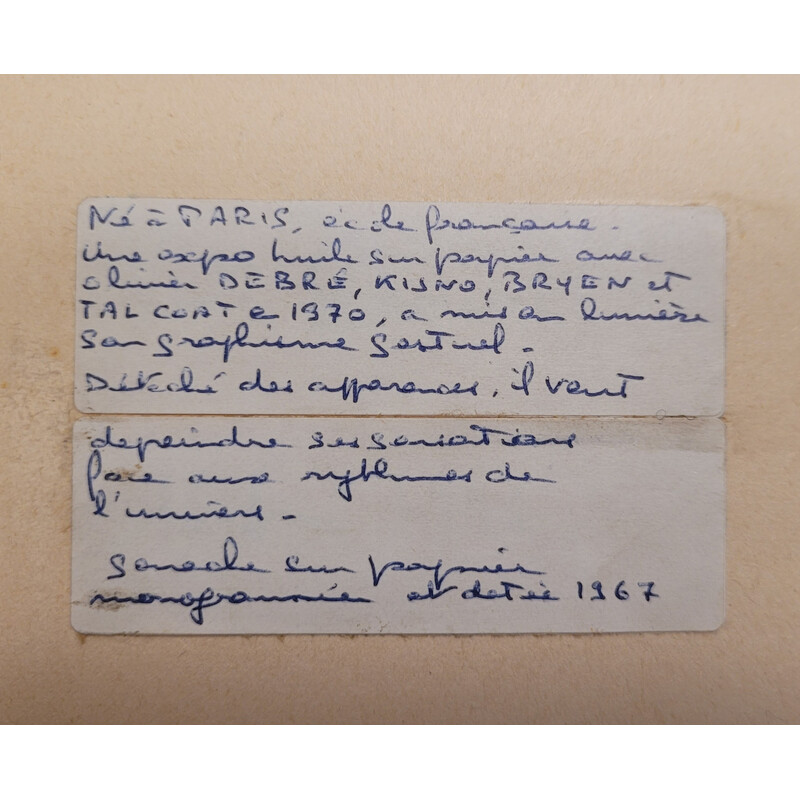 Né à PARIS, école française.
Une expo huile sur papier avec
olivier DEBRÉ, KIJNO, BRYEN et
TAL COAT en 1970, a mis en lumière
son graphisme gestuel.
Détaché des apparences, il veut
depeindre ses sensations
face aux rythmes de
l'univers.
Gouache sur papier
monogrammée et datée 1967